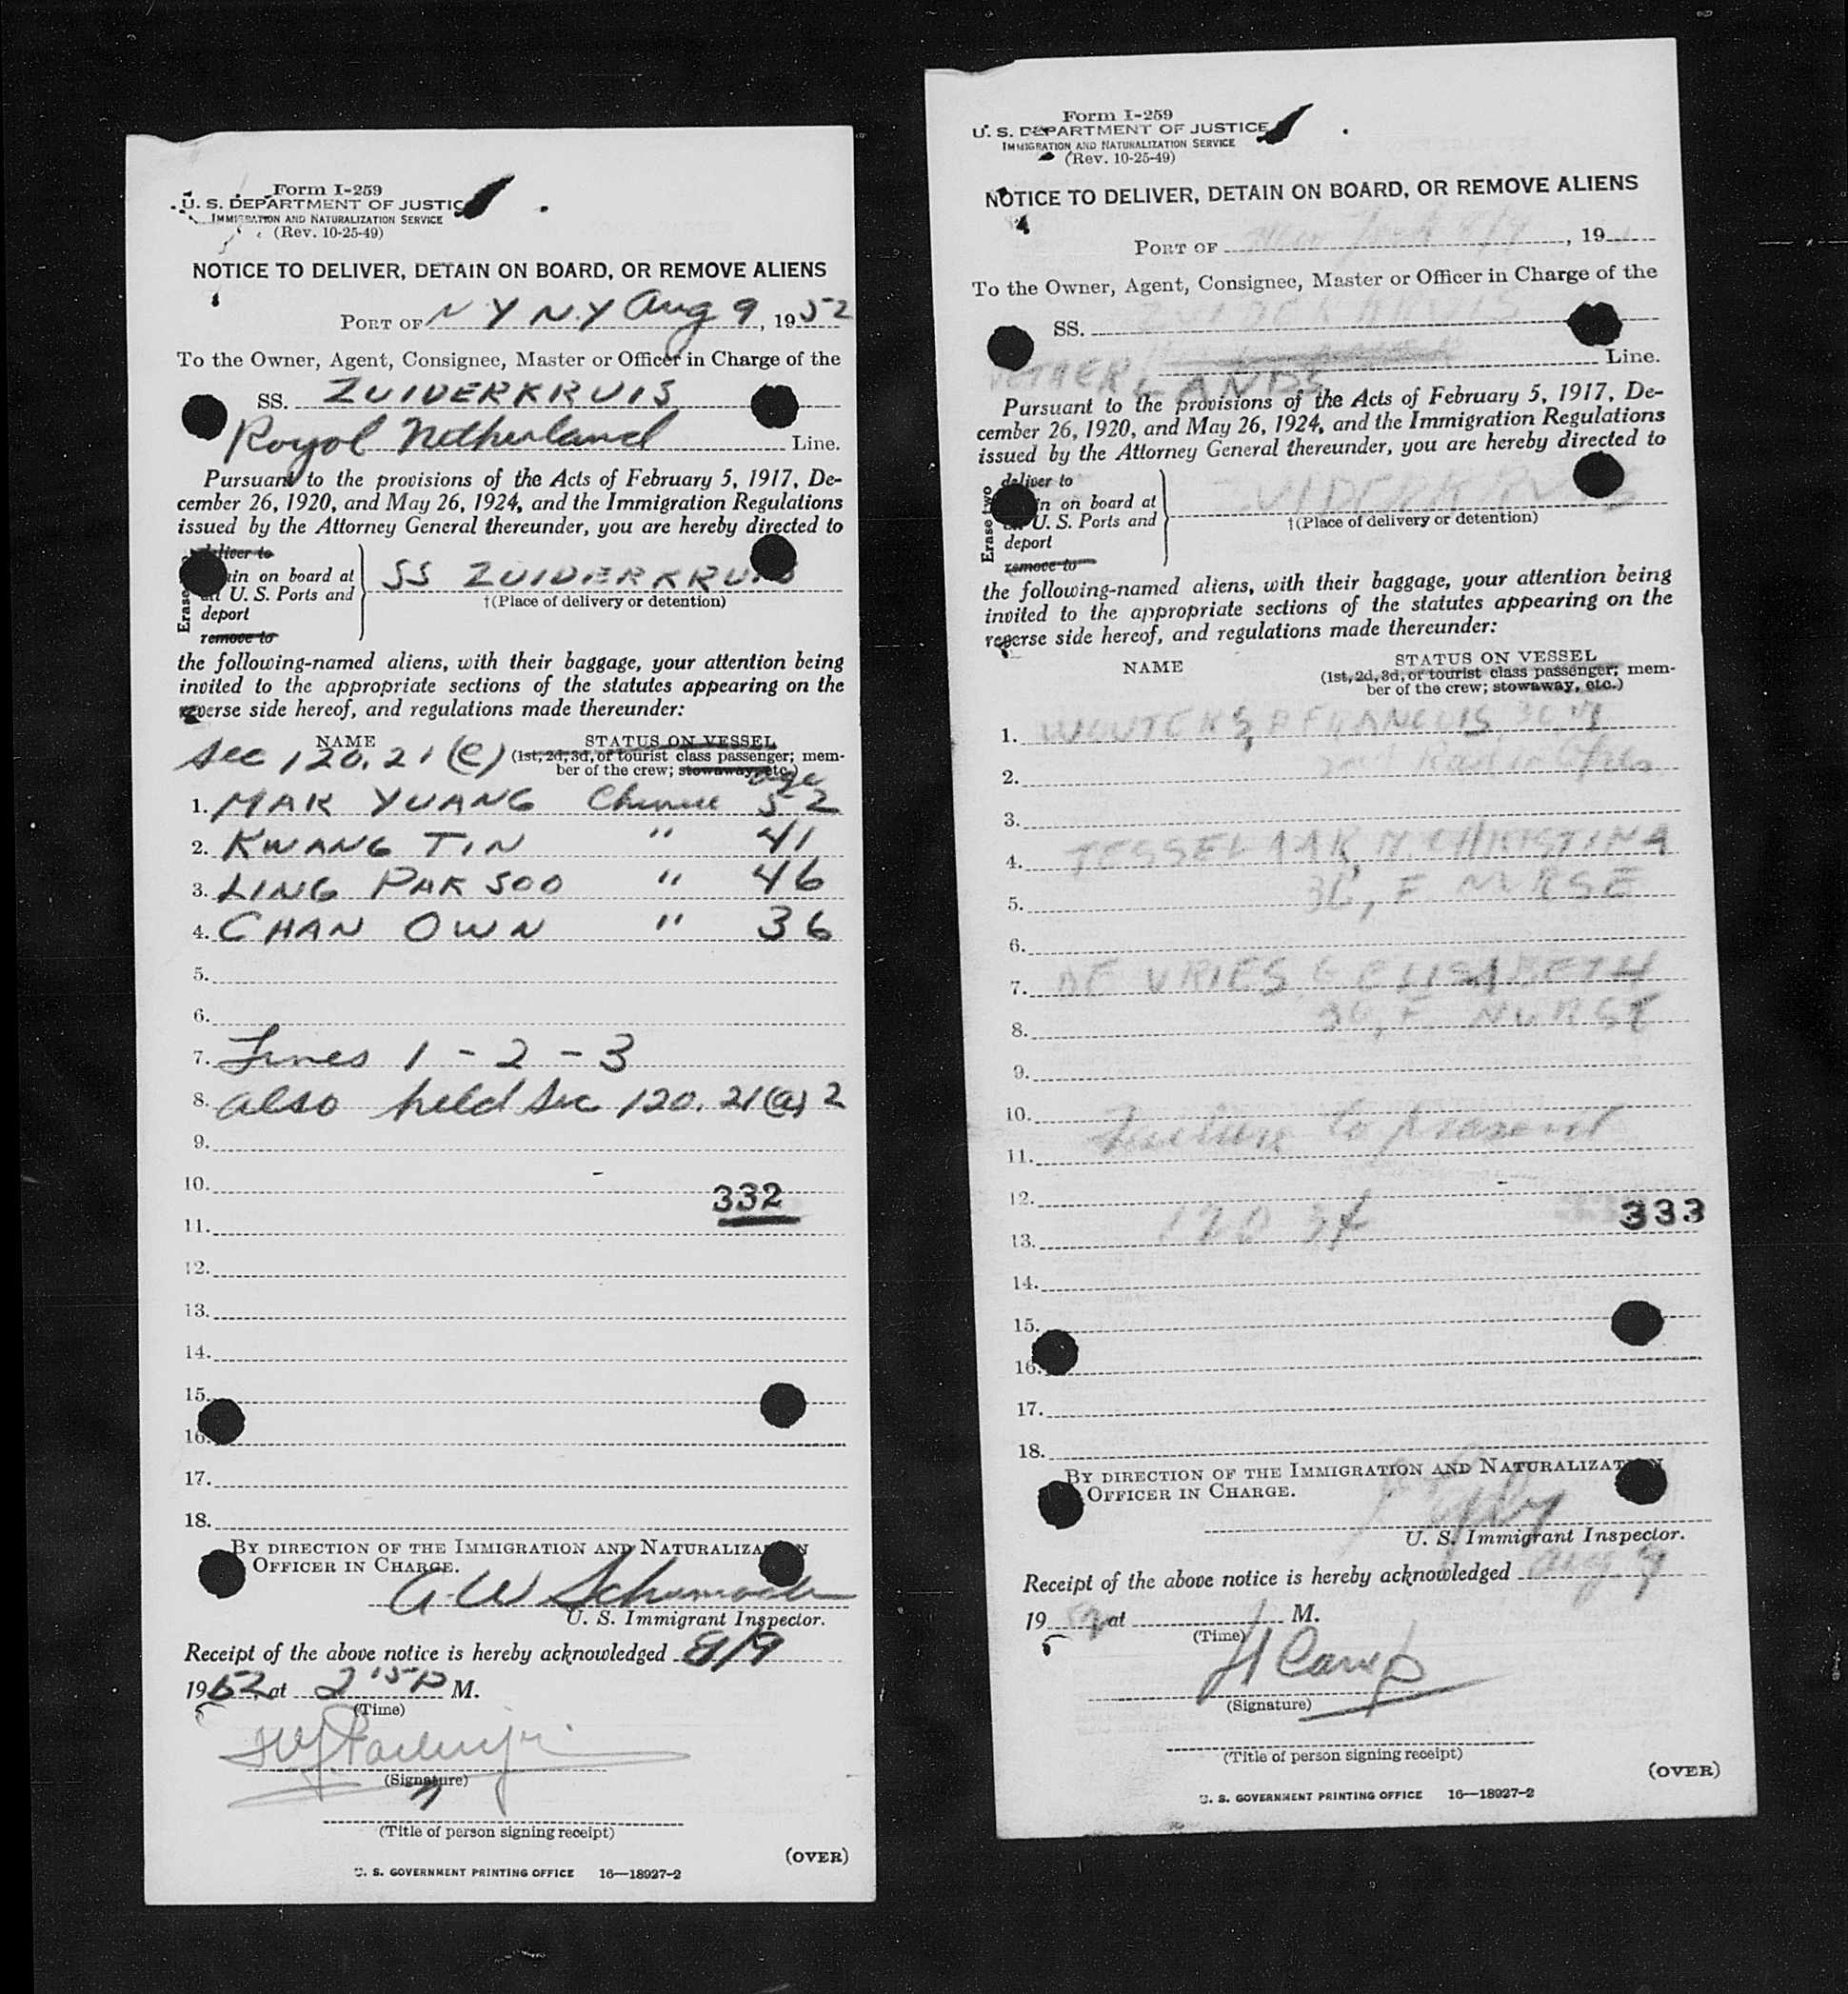 Form I-259
U. S. DEPARTMENT OF JUSTIC
IMMIGRATION AND NATURALIZATION SERVICE
(Rev. 10-25-49)
NOTICE TO DELIVER, DETAIN ON BOARD, OR REMOVE ALIENS
PORT OF N Y N.Y Aug 9, 1952
To the Owner, Agent, Consignee, Master or Officer in Charge of the
SS. ZUIDERKRUIS
Royal Netherland Line.
Pursuant to the provisions of the Acts of February 5, 1917, De-
cember 26, 1920, and May 26, 1924, and the Immigration Regulations
issued by the Attorney General thereunder, you are hereby directed to
Erase
deliver to
ain on board at
all U. S. Ports and
deport
remove to
SS ZUIDERKRUIS
†(Place of delivery or detention)
the following-named aliens, with their baggage, your attention being
invited to the appropriate sections of the statutes appearing on the
reverse side hereof, and regulations made thereunder:
NAME STATUS ON VESSEL
Sec 120.21(e) (1st, 2d, 3d, or tourist class passenger; mem-
ber of the crew; stowaway, etc.)
age
1. MAK YUANG Chinese 52
2. KWANG TIN " 41
3. LING PAK SOO " 46
4. CHAN OWN " 36
5.
6.
7. Lines 1 - 2 - 3
8. also held Sec 120.21(a) 2
9.
10.
332
11.
12.
13.
14.
15.
16.
17.
18.
BY DIRECTION OF THE IMMIGRATION AND NATURALIZATION
OFFICER IN CHARGE.
U. S. Immigrant Inspector.
Receipt of the above notice is hereby acknowledged 8/9
1952 at 2 15 P M.
(Time)
(Signature)
(Title of person signing receipt)
(OVER)
U. S. GOVERNMENT PRINTING OFFICE 16—18927-2
Form I-259
U. S. DEPARTMENT OF JUSTICE
IMMIGRATION AND NATURALIZATION SERVICE
(Rev. 10-25-49)
NOTICE TO DELIVER, DETAIN ON BOARD, OR REMOVE ALIENS
PORT OF New York 8/9, 19
To the Owner, Agent, Consignee, Master or Officer in Charge of the
SS. ZUIDERKRUIS
NETHERLANDS Line.
Pursuant to the provisions of the Acts of February 5, 1917, De-
cember 26, 1920, and May 26, 1924, and the Immigration Regulations
issued by the Attorney General thereunder, you are hereby directed to
Erase two
deliver to
in on board at
U. S. Ports and
deport
remove to
ZUIDERKRUIS
†(Place of delivery or detention)
the following-named aliens, with their baggage, your attention being
invited to the appropriate sections of the statutes appearing on the
reverse side hereof, and regulations made thereunder:
NAME STATUS ON VESSEL
(1st, 2d, 3d, or tourist class passenger; mem-
ber of the crew; stowaway, etc.)
1. WOUTERS, P FRANCOIS, 30 M
2. 2nd
3.
4. TESSELAAR, M. CHRISTINA
5. 36, F. NURSE
6.
7. DE VRIES, G ELISABETH
8. 36, F. NURSE
9.
10. Failure to present
11.
12.
13. 120 34 333
14.
15.
16.
17.
18.
BY DIRECTION OF THE IMMIGRATION AND NATURALIZATION
OFFICER IN CHARGE.
U. S. Immigrant Inspector.
Receipt of the above notice is hereby acknowledged Aug 9
1952 at M.
(Time)
H Camp
(Signature)
(Title of person signing receipt)
(OVER)
U. S. GOVERNMENT PRINTING OFFICE 16—18927-2